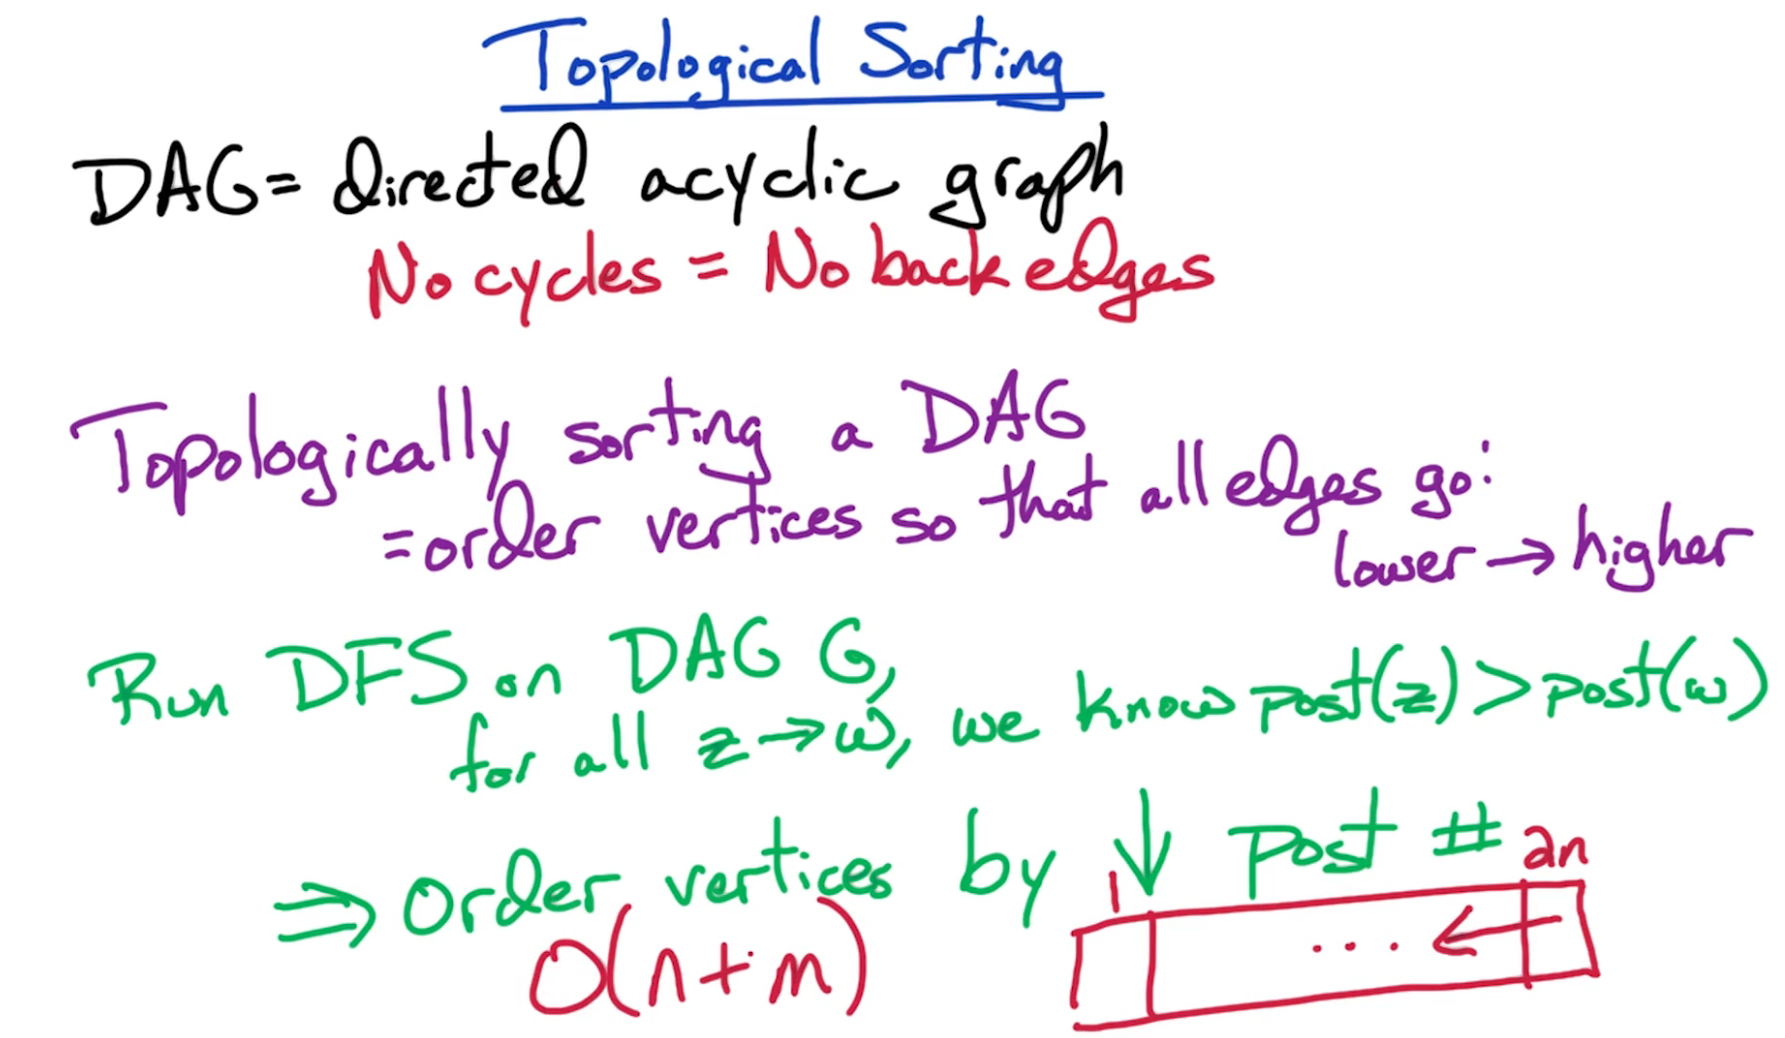 Topological Sorting
DAG = directed acyclic graph
No cycles = No back edges
Topologically sorting a DAG
= order vertices so that all edges go:
lower → higher
Run DFS on DAG G,
for all z → w, we know post(z) > post(w)
⇒ Order vertices by ↓ post #
O(n+m)
1 ... ← 2n